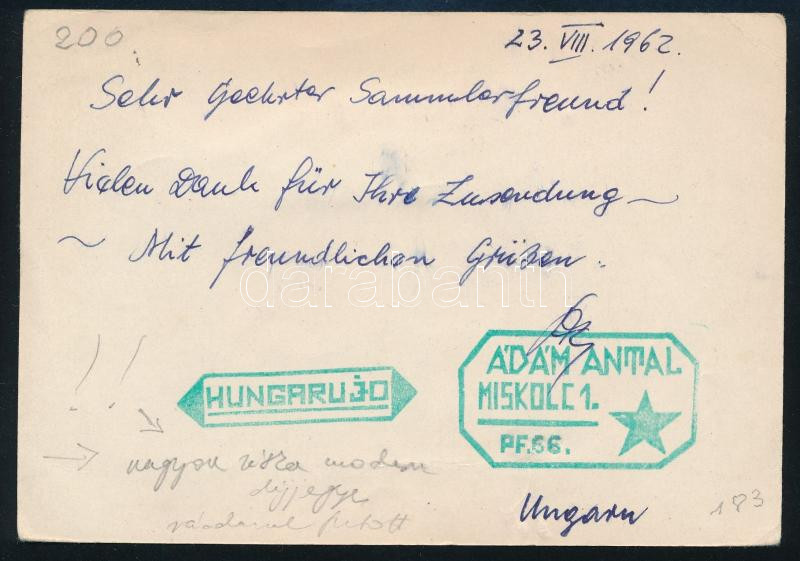 200
23. VIII. 1962.
Sehr Geehrter Sammlerfreund!
Vielen Dank für Ihre Zusendung ~
~ Mit freundlichen Grüßen.
darabanth
ÁDÁM ANTAL
MISKOLC 1.
PF.66.
HUNGARUJO
!!
nagyon ritka modern
díjjegye
Ungarn
183